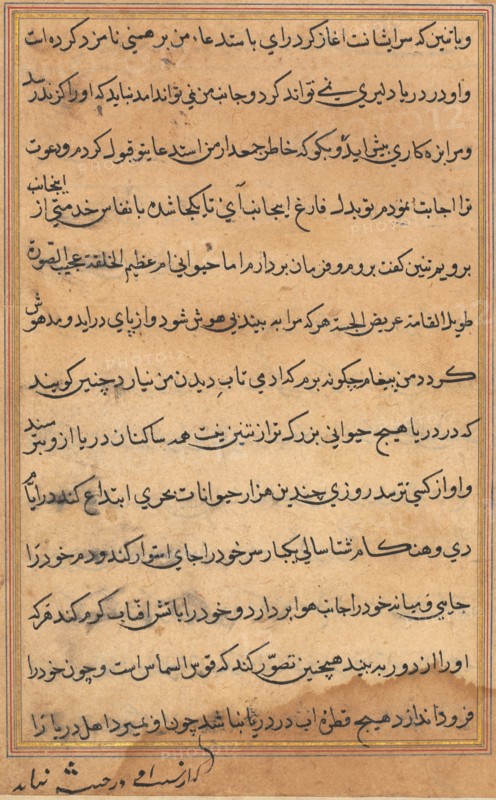 و با تنین که سر ایشانت اغاز کرد رای باستدعاء من برهمنی نامزد کرده است
و او در دریا دلیری نمی تواند کرد و جانب من نمی تواند امد نباید که او را کزند رسد
و مرا بزه کاری بیش اید و بکو که خاطر جمع دار من استدعا تو قبول کردم و دعوت
ترا اجابت نمودم تو بدل فارغ اینجانب آی تا یکجا شده بانفاس خدمتی از اینجانب
برویم تنین کفت بروم و فرمان بردارم اما حیوانی ام عظیم الخلقة عجیب الصورة
طویل القامة عریض الجسة هر که مرا به بیند بی هوش شود و از پای در اید و مدهوش
کردد من پیغام چکونه برم که ادمی تابِ دیدن من نیارد چنین کویند
که در دریا هیچ حیوانی بزرک تر از تنین نیست همه ساکنان دریا ازو بترسند
و او از کسی نترسد روزی چندین هزار حیوانات بحری ابتداع کند در ایام
دی و هنکام شتا سالی یکبار سر خود را جای استوار کند و دم خود را
جایی و میانه خود را جانب هوا بردارد و خود را باتش افتاب کرم کند هر که
او را از دور به بیند همچنین تصوّر کند که قوس السماس است و چون خود را
فرود اندازد هیچ قطره اب در دریا نباشد چون او بمیرد اهل دریا را